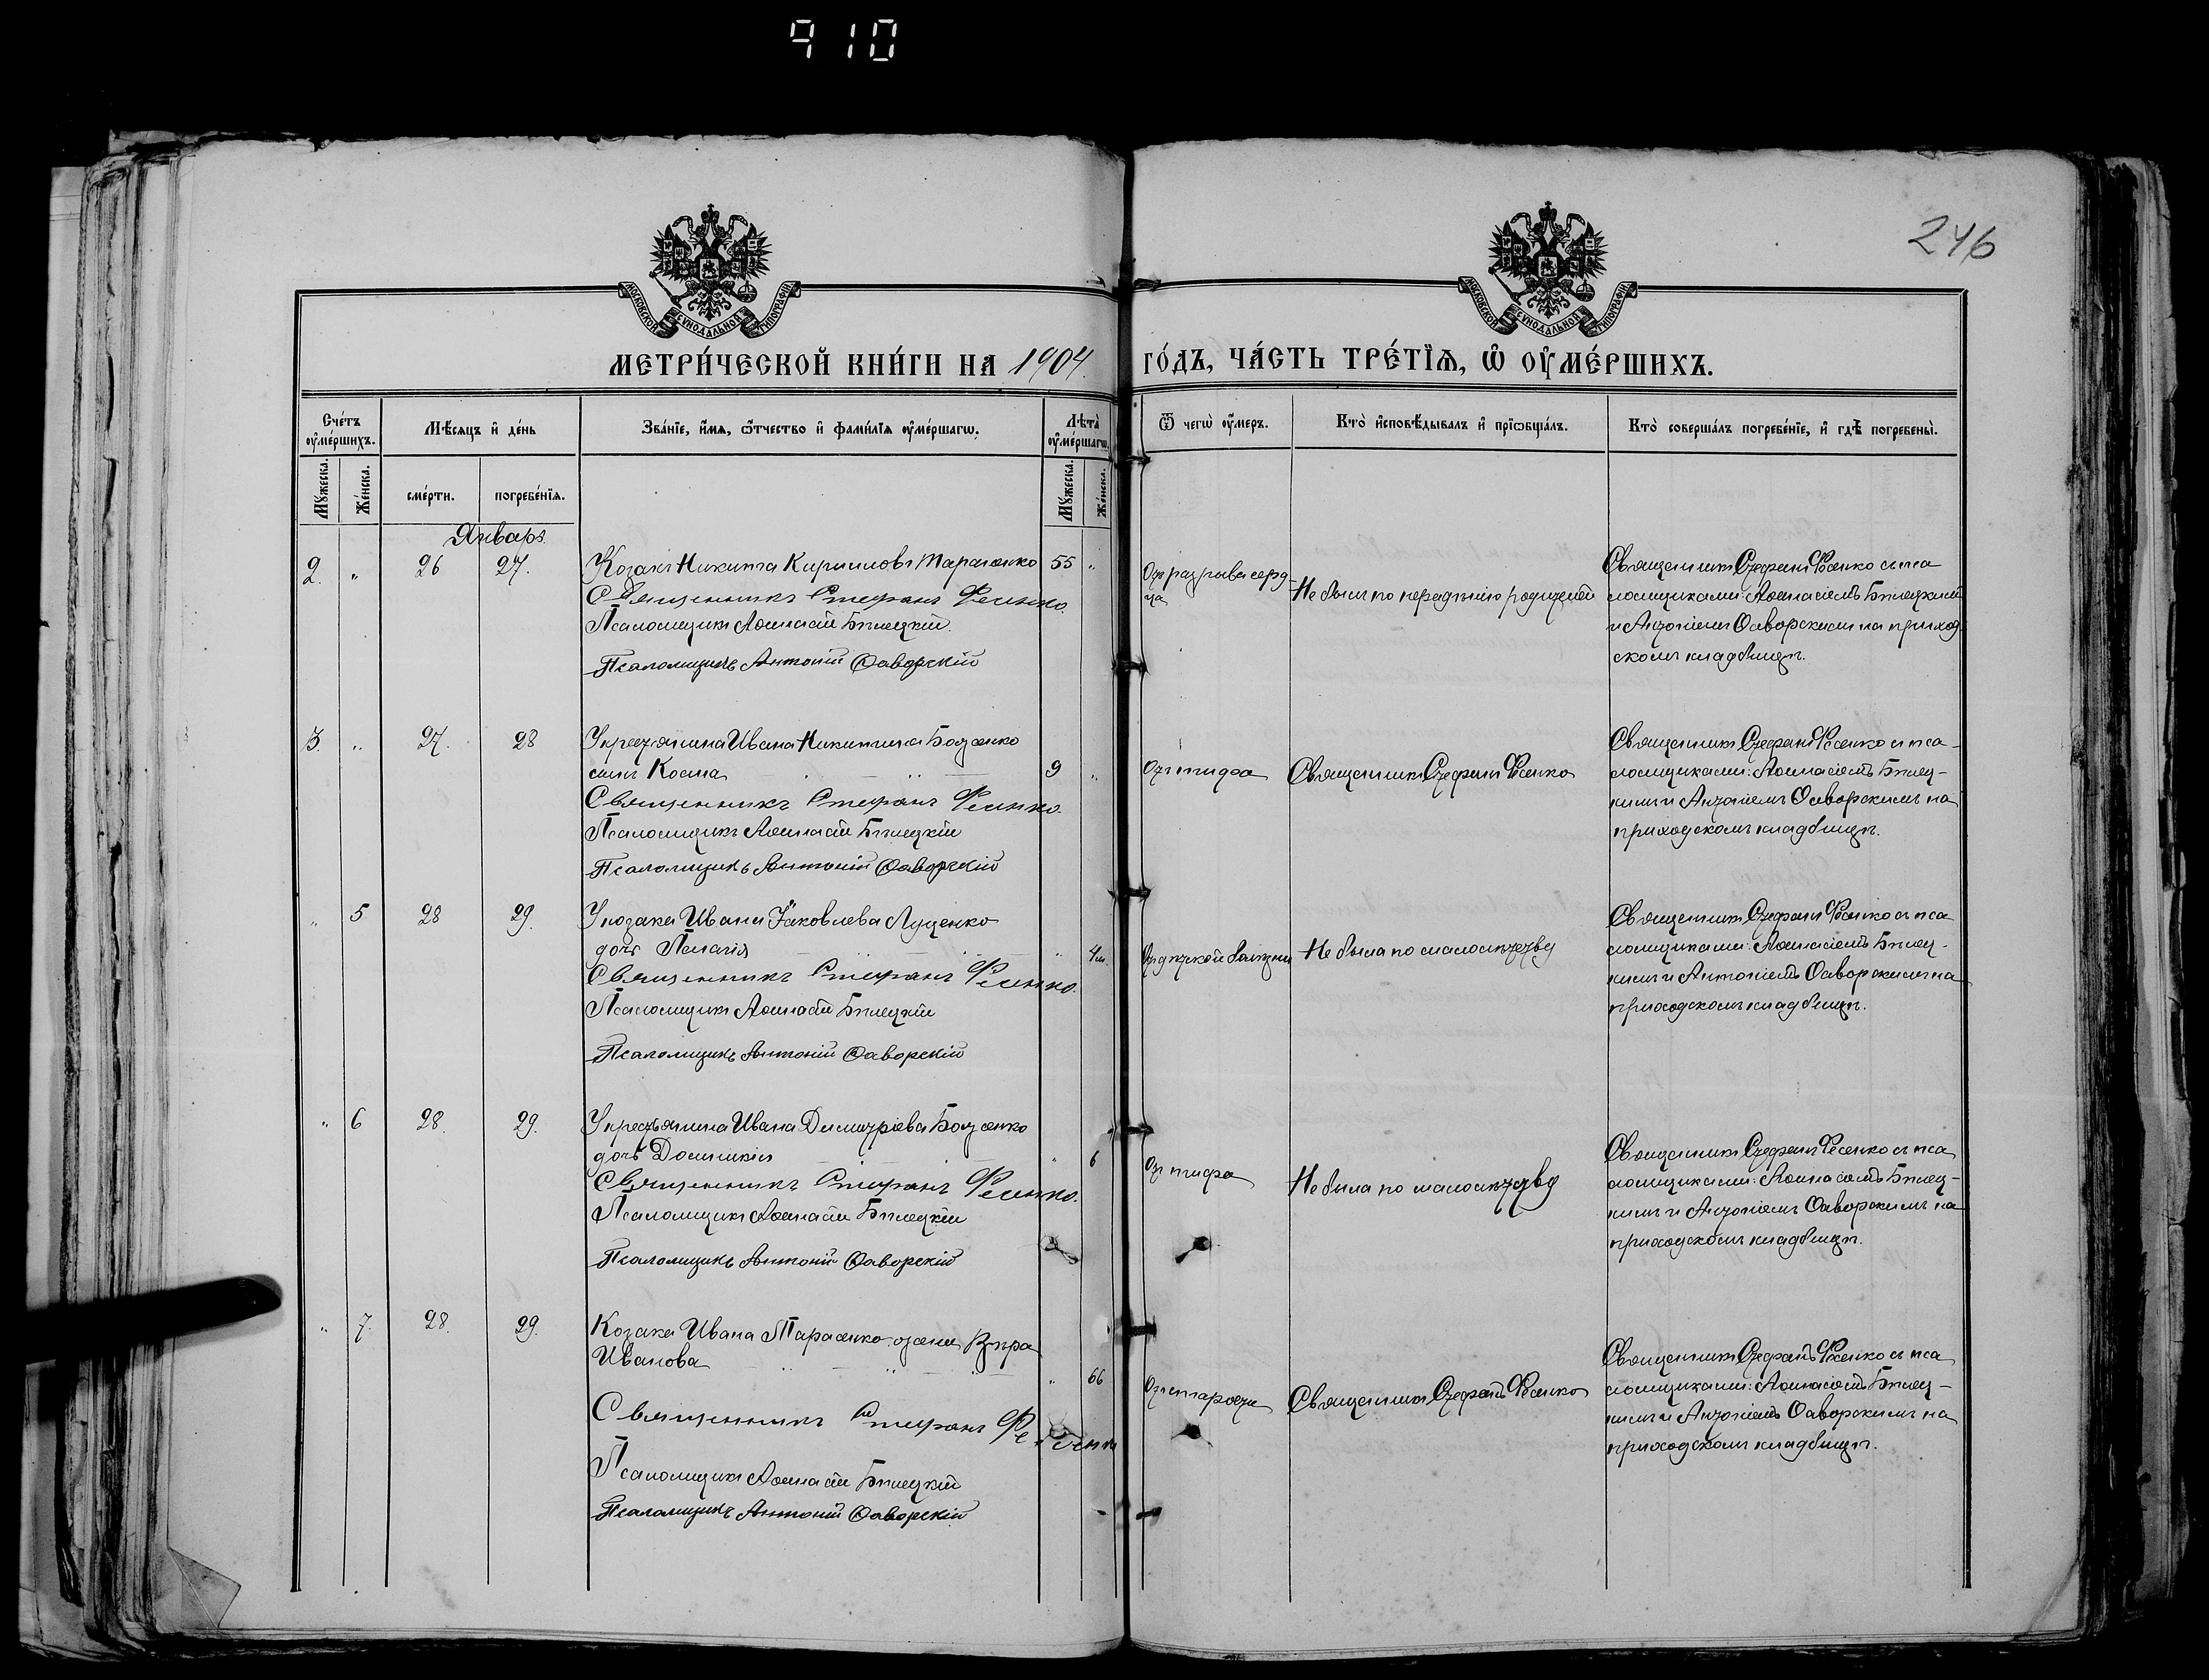 910
246
МОСКОВСКОЙ СѴНОДАЛЬНОЙ ТИПОГРАФІИ
МОСКОВСКОЙ СѴНОДАЛЬНОЙ ТИПОГРАФІИ
МЕТРИ́ЧЕСКОЙ КНИ́ГИ НА 1904 ГО́ДЪ, ЧА́СТЬ ТРЕ́ТЇѦ, Ѽ ОУ҆МЕ́РШИХЪ.
Сче́тъ оу҆ме́ршихъ.
Мꙋ́жеска.
Же́нска.
Мѣ́сяцъ и҆ де́нь
сме́рти.
погребе́нїя.
Зва́нїе, и҆́мя, ѻ҆́тчество и҆ фами́лїя оу҆ме́ршагѡ.
Лѣта̀ оу҆ме́ршагѡ.
Мꙋ́жеска.
Же́нска.
Ѿ чегѡ̀ оу҆́меръ.
Кто̀ и҆сповѣ́дывалъ и҆ прїѻбща́лъ.
Кто̀ соверша́лъ погребе́нїе, и҆ гдѣ̀ погребены̀.
Январь
2. " 26 27. Козакъ Никита Кирилловъ Тарасенко 55 "
Священникъ Стефанъ Фесенко.
Псаломщикъ Аѳанасій Бѣлецкій.
Псаломщикъ Антоній Ѳаворскій
Отъ разрыва серд-
ца
Не былъ по нерадѣнію родителей
Священникъ Стефанъ Фесенко съ пса
ломщиками: Аѳанасіемъ Бѣлецкимъ
и Антоніемъ Ѳаворскимъ на приход
скомъ кладбищѣ.
3. " 27. 28 У крестьянина Ивана Никитина Боженко
сынъ Косма 9 "
Священникъ Стефанъ Фесенко.
Псаломщикъ Аѳанасій Бѣлецкій
Псаломщикъ Антоній Ѳаворскій
Отъ тифа
Священникъ Стефанъ Фесенко
Священникъ Стефанъ Фесенко съ пса-
ломщиками: Аѳанасіемъ Бѣлец-
кимъ и Антоніемъ Ѳаворскимъ на
приходскомъ кладбищѣ.
" 5 28 29. У козака Ивана Іаковлева Луценко
дочь Пелагія " 4м.
Священникъ Стефанъ Фесенко.
Псаломщикъ Аѳанасій Бѣлецкій
Псаломщикъ Антоній Ѳаворскій
Отъ дѣтской болѣзни
Не была по малолѣтству
Священникъ Стефанъ Фесенко съ пса
ломщиками: Аѳанасіемъ Бѣлец-
кимъ и Антоніемъ Ѳаворскимъ на
приходскомъ кладбищѣ.
" 6 28. 29. У крестьянина Ивана Димитріева Боженко
дочь Домникія " 6
Священникъ Стефанъ Фесенко.
Псаломщикъ Аѳанасій Бѣлецкій
Псаломщикъ Антоній Ѳаворскій
Отъ тифа
Не была по малолѣтству
Священникъ Стефанъ Фесенко съ пса
ломщиками: Аѳанасіемъ Бѣлец-
кимъ и Антоніемъ Ѳаворскимъ на
приходскомъ кладбищѣ.
" 7. 28. 29. Козака Ивана Тарасенко жена Вѣра
Иванова " 66
Священникъ Стефанъ Фесенко
Псаломщикъ Аѳанасій Бѣлецкій
Псаломщикъ Антоній Ѳаворскій
Отъ старости
Священникъ Стефанъ Фесенко
Священникъ Стефанъ Фесенко съ пса
ломщиками: Аѳанасіемъ Бѣлец-
кимъ и Антоніемъ Ѳаворскимъ на
приходскомъ кладбищѣ.